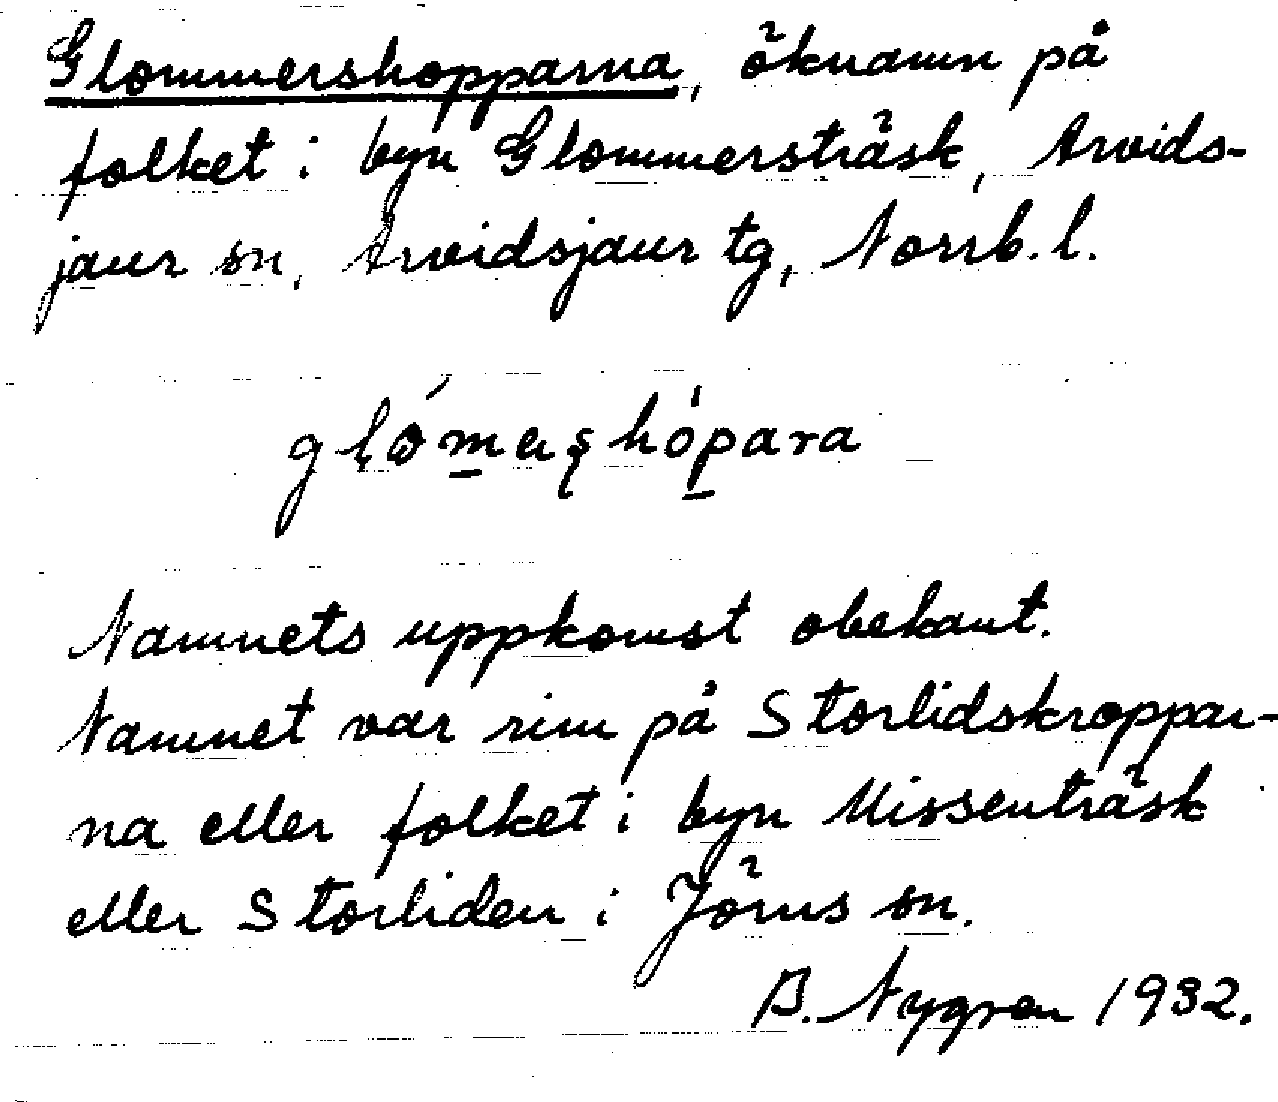 Glommershopparna, öknamn på
folket i byn Glommersträsk, Arvids-
jaur sn, Arvidsjaur tg, Norrb. l.
Namnets uppkomst obekant.
Namnet var rim på Storlidskroppar-
na eller folket i byn Missenträsk
eller Storliden i Jörns sn.
B. Nygren 1932.